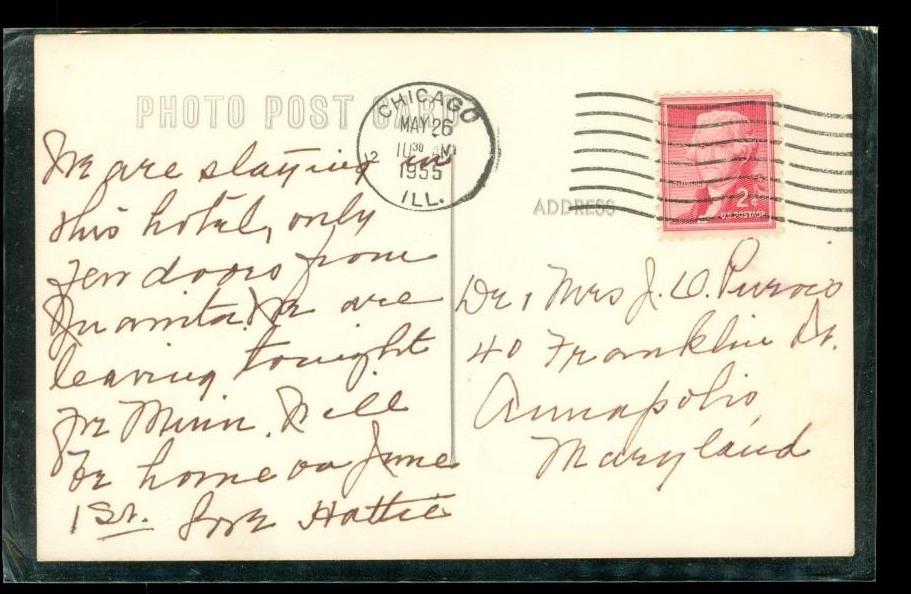 PHOTO POST CARD
CHICAGO
MAY 26
10 30 AM
1955
ILL.
2¢
U.S. POSTAGE
ADDRESS
We are staying in
this hotel, only
few doors from
Juanita. We are
leaving tonight
for Minn. Will
be home on June
1st. Love Hattie
Dr. & Mrs J. O. Purvis
40 Franklin St.
Annapolis
Maryland